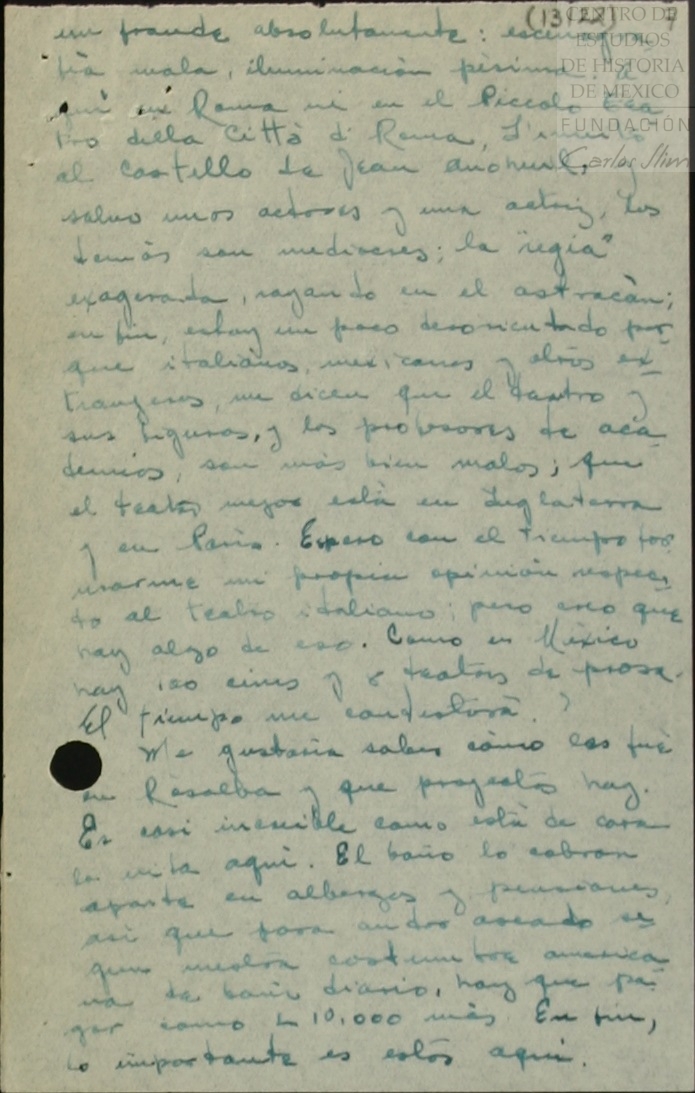 (13122) 7
CENTRO DE
ESTUDIOS
DE HISTORIA
DE MEXICO
FUNDACIÓN
Carlos Slim
un fraude absolutamente: escenogra-
fía mala, iluminación pésima: a
quí en Roma ni en el Piccolo Tea
tro della Città di Roma, L'invito
al castello de Jean Anouilh, y
salvo unos actores y una actriz, los
demás son mediocres; la "regia"
exagerada, rayando en el astracán;
en fin, estoy un poco desorientado por-
que italianos, mexicanos y otros ex-
tranjeros, me dicen que el teatro y
sus figuras, y los profesores de aca-
demias, son más bien malos; que
el teatro mejor está en Inglaterra
y en París. Espero con el tiempo for
marme mi propia opinión respec-
to al teatro italiano; pero creo que
hay algo de eso. Como en México
hay 100 cines y 8 teatros de prosa.
El tiempo me contestará.?
Me gustaría saber cómo les fué
en Rosalba y que proyectos hay.
Es casi increíble como está de cara
la vida aquí. El baño lo cobran
aparte en albergos y pensiones,
así que para andar aseado se-
gún nuestra costumbre america-
na de baño diario, hay que pa-
gar como L 10.000 más. En fin,
lo importante es estar aquí.